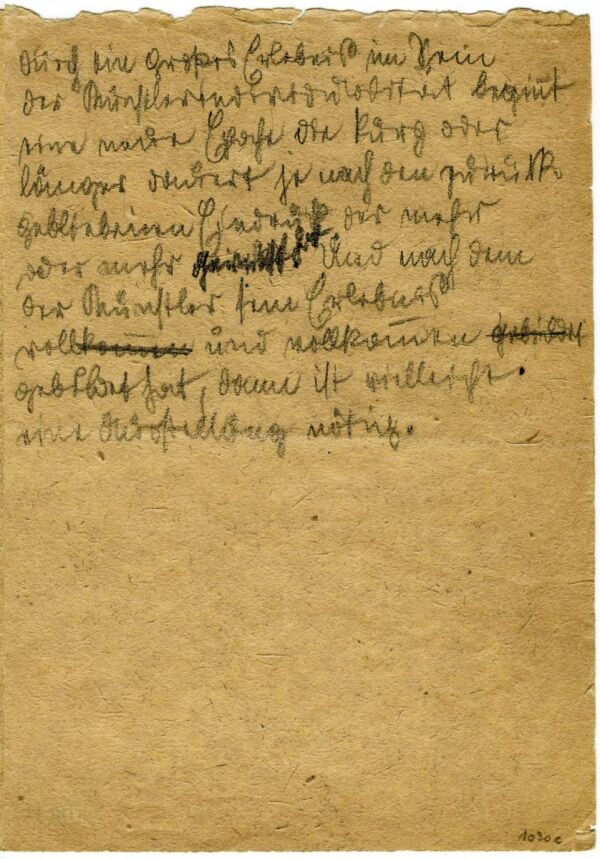 durch ein grosses Erlebnis im Sein
der Künstlerindividualität beginnt
eine neue Epoche die kurz oder
länger dauert je nach den zurück-
gebliebenen Eindruck der mehr
oder mehr hat. Und nach dem
der Künstler sein Erlebnis
voll kommen und vollkommen gebildet
gebildet hat, dann ist vielleicht.
eine Ausstellung nötig.
1030c